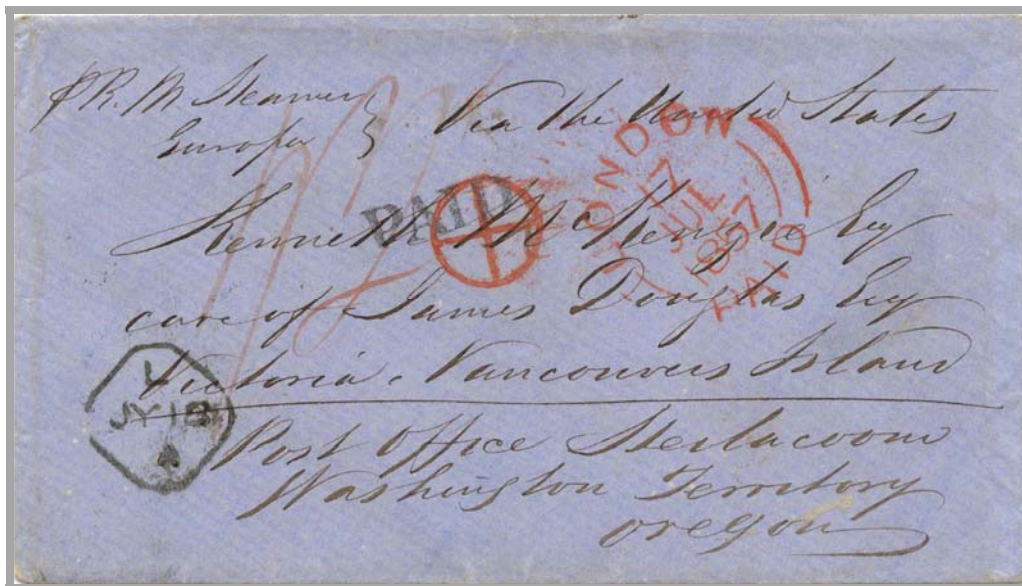 PR. M. Steamer
Europa
Via the United States
PAID
LONDON
17
JUL
1857
PAID
Kenneth McKenzie Esq
care of James Douglas Esq
Victoria. Vancouvers Island
L
JY 18
Post Office Steilacoom
Washington Territory
Oregon